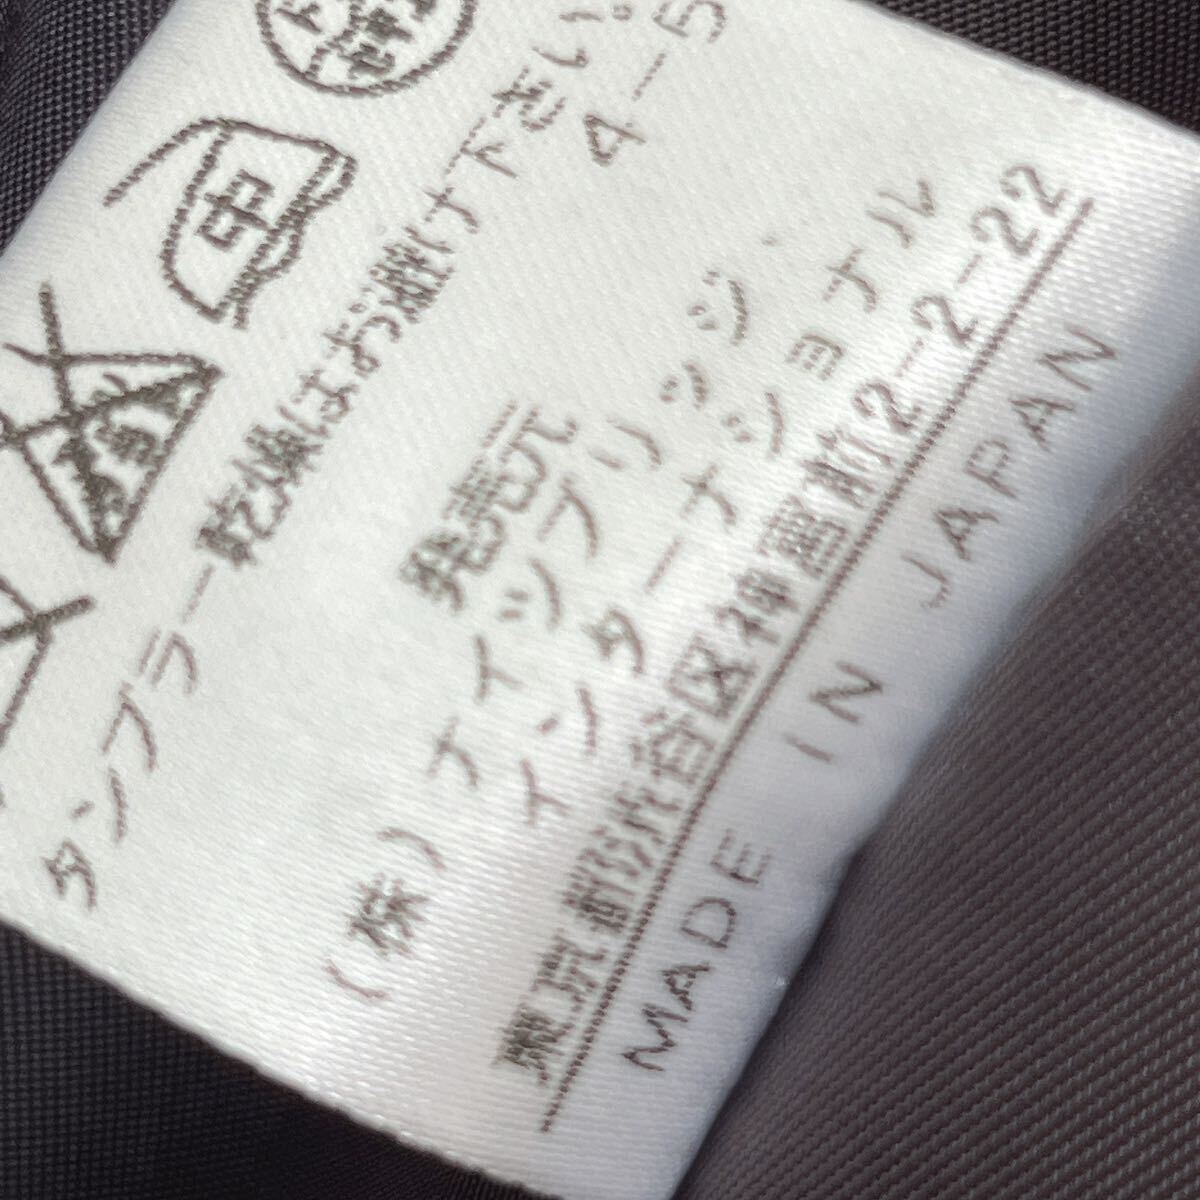 中
タンブラー乾燥はお避け下さい。
4-5
発売元
(株) ナイツブリッジ
インターナショナル
東京都渋谷区神宮前2-2-22
MADE IN JAPAN